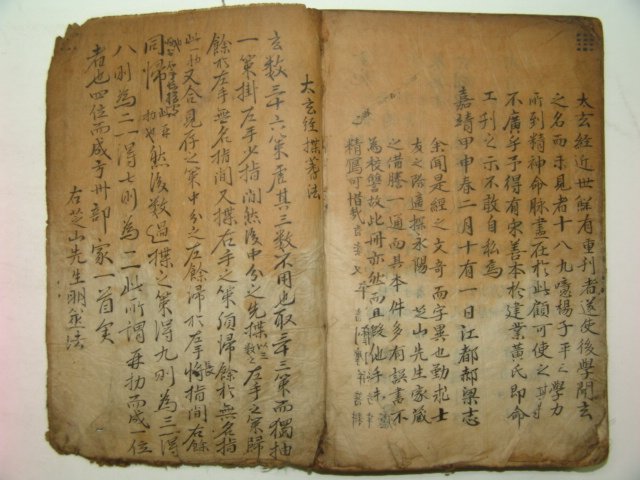 太玄經近世鮮有重刊者遂使後學聞玄
之名而未見者十八九噫楊子平之學力
所到精神命脉盡在於此顧可使之
不廣乎予得有宋善本於建業黃氏即命
工刊之示不敢自私焉
嘉靖甲申春二月十有一日江都郝梁志
余聞是經之文奇而字異也勤求士
友之際適探永陽芝山先生家藏
之借謄一通而其本件多有誤書不
為校讐故此冊亦然而且假他手
精寫可惜哉
太玄經揲蓍法
玄數三十六策虛其三數不用也取三十三策而獨抽
一策掛左手小指間然後中分之先揲以三數之左手之策歸
餘於左手無名指間又揲右手之策須歸餘於無名指
此一扐又合見存之策中分之左餘歸於左手將指間右餘
同歸 然後數過揲之策得九則為三得
八則為二得七則為一此所謂再扐而成一位
者也四位而成方州部家一首矣
右芝山先生明蓍法